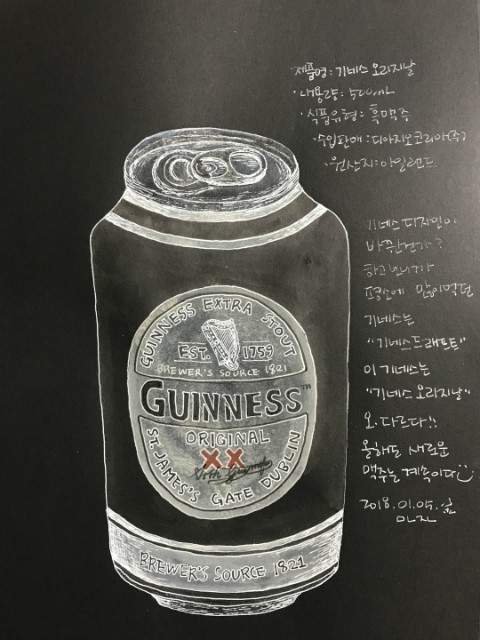 제품명: 기네스 오리지날
·내용량: 500mL
·식품유형: 흑맥주
·수입판매: 디아지오코리아(주)
·원산지: 아일랜드
기네스 디자인이
바뀐건가?
하고 보니까
평소에 많이 먹던
기네스는
"기네스드래프트"
이 기네스는
"기네스 오리지날"
오. 다르다!!
올해도 새로운
맥주는 계속이다
2018.01.05.
GUINNESS EXTRA STOUT
EST. 1759
BREWER'S SOURCE 1821
GUINNESS™
ORIGINAL
XX
ST. JAMES'S GATE DUBLIN
BREWER'S SOURCE 1821